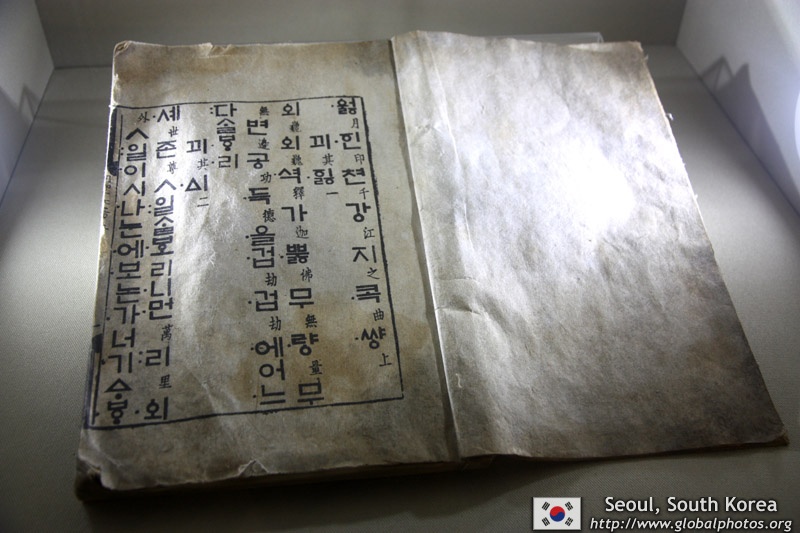 ᅌᅯᇙ月ᅙᅵᆫ印쳔千강江지之콕曲썅上
끠其ᅙᅵᇙ一
외巍외巍셕釋가迦뿌ᇙ佛무無량量무
無변邊공功득德을겁劫겁劫에어느
다ᄉᆞᆯᄫᆞ리
끠其ᅀᅵ二
셰世존尊ㅅ일ᄉᆞᆯᄫᅩ리니먼萬리里외
外ㅅ일이시나눈에보논가너기ᅀᆞᄫᆞ
Seoul, South Korea
http://www.globalphotos.org